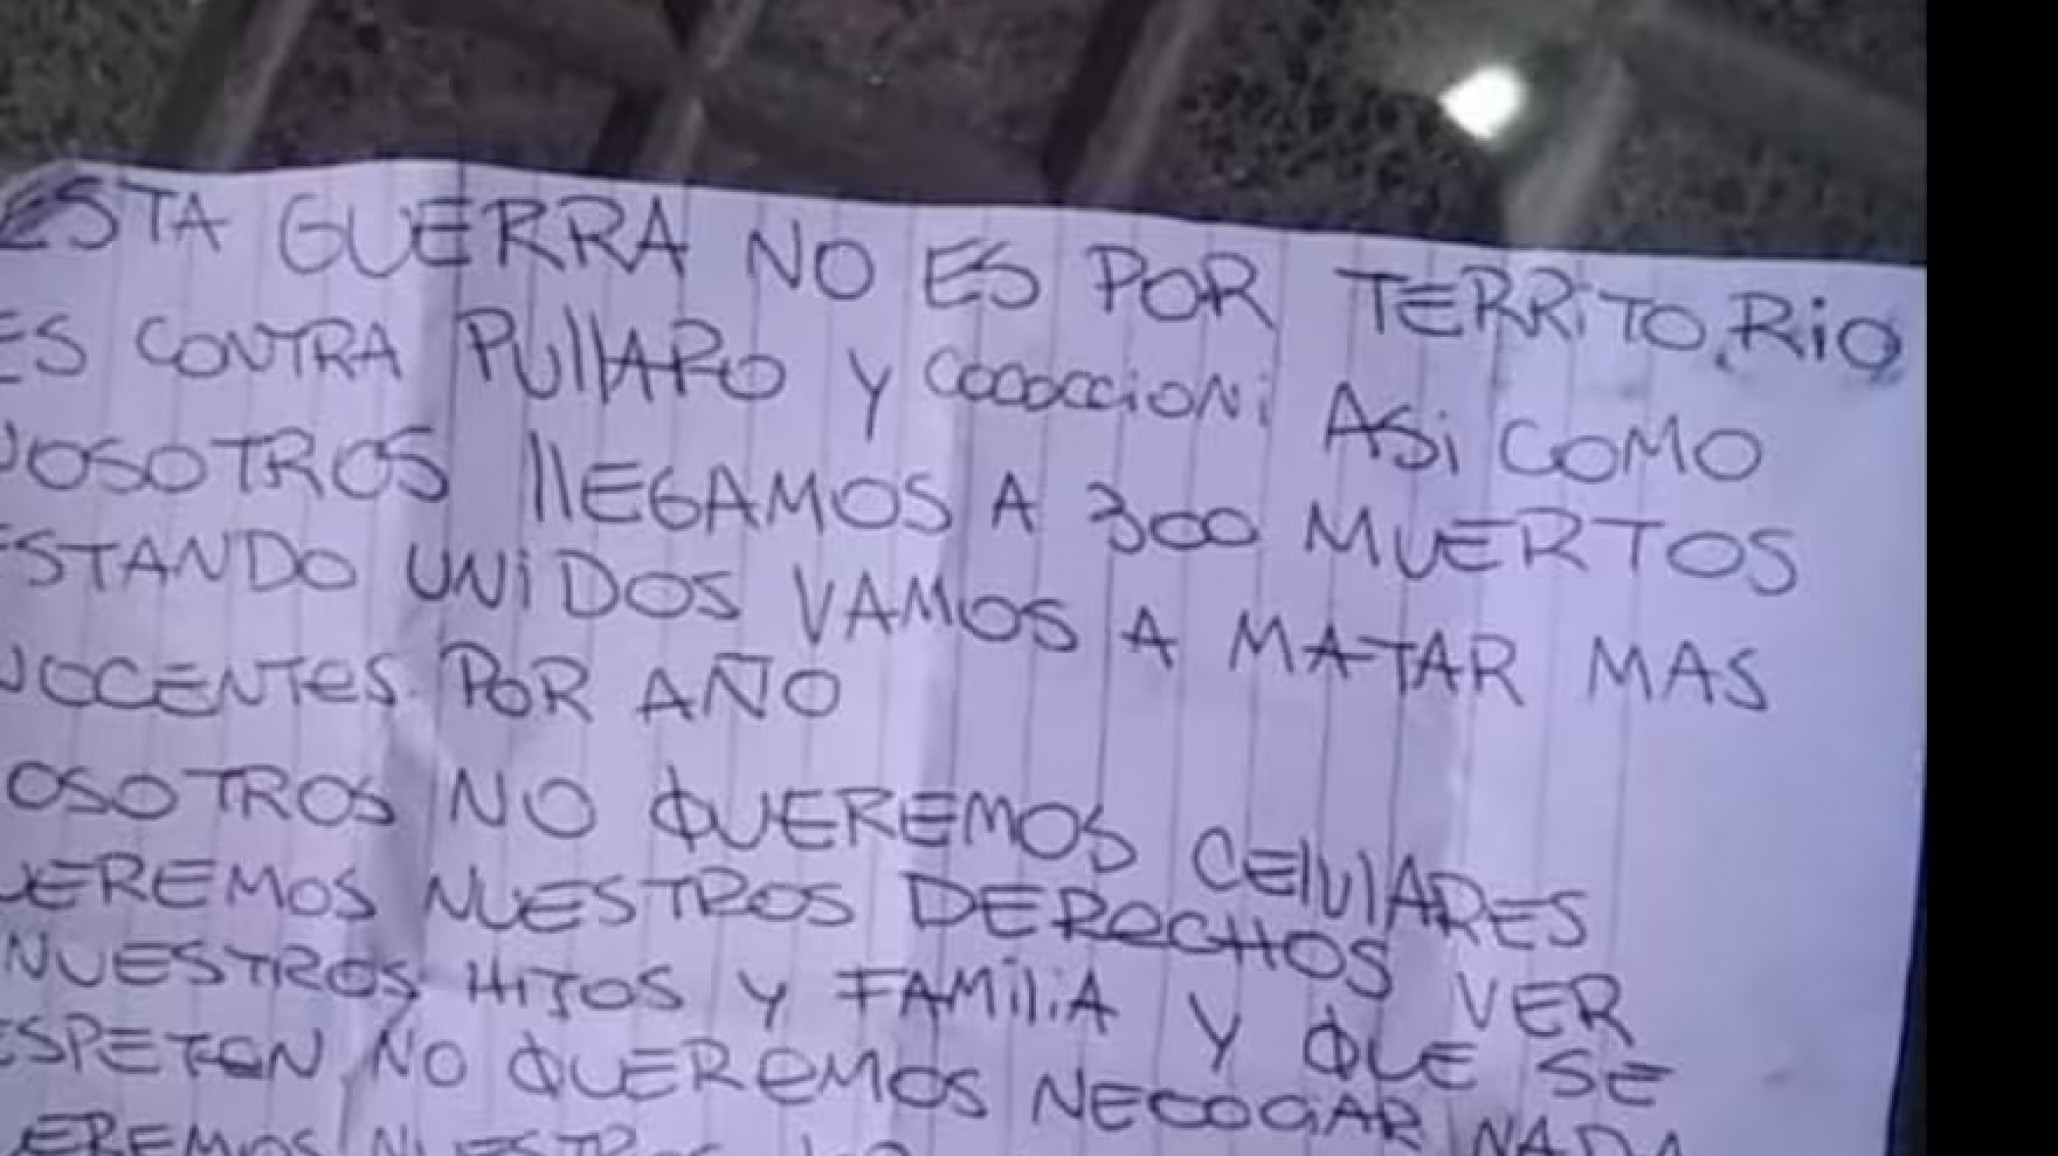 ESTA GUERRA NO ES POR TERRITORIO
ES CONTRA PULLARO Y COCOCCIONI ASI COMO
NOSOTROS LLEGAMOS A 300 MUERTOS
ESTANDO UNIDOS VAMOS A MATAR MAS
NOCENTES POR AÑO
OSOTROS NO QUEREMOS CELULARES
UEREMOS NUESTROS DERECHOS VER
NUESTROS HIJOS Y FAMILIA Y QUE SE
ESPETEN NO QUEREMOS NECOGAR NADA
EREMOS NUESTROS